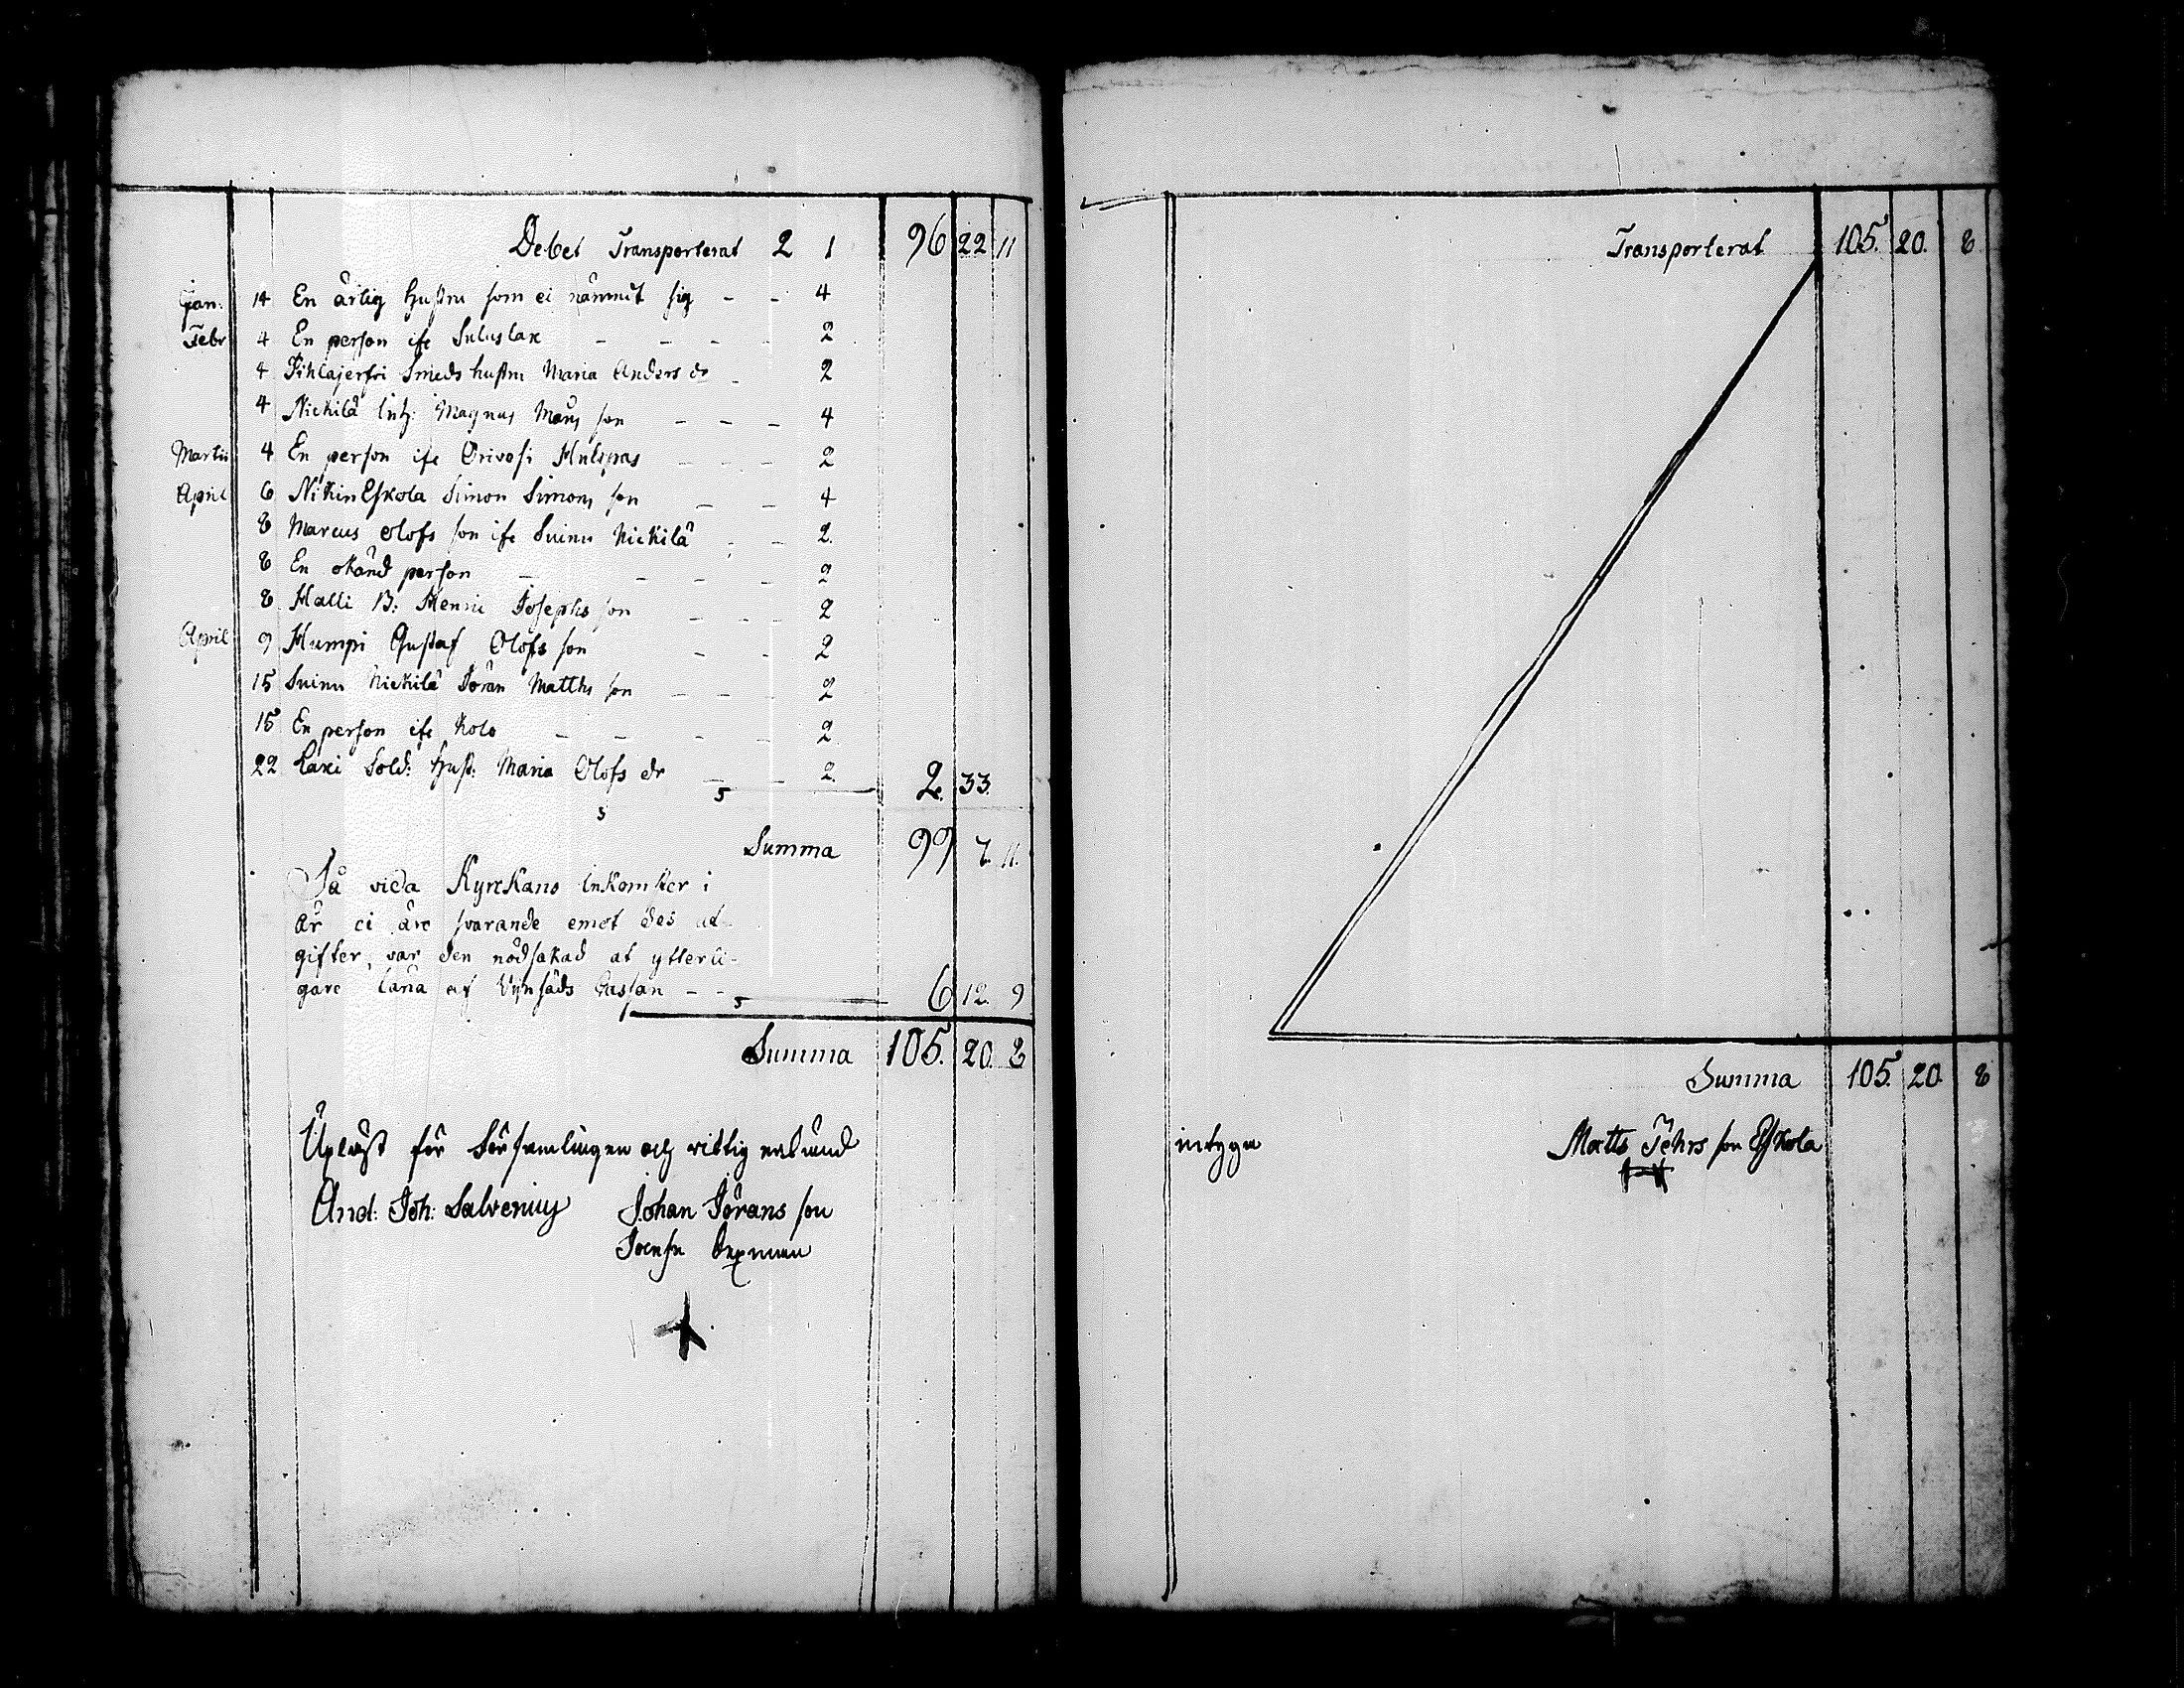 Debet Transporterat 2 1 96 22 11
Jan: 14 En ärlig hustru som ei nämnit sig - - 4
Febr 4 En person ifr Suluslax - - - - 2
4 Pihlajerfvi Smeds hustru Maria Anders dr - 2
4 Nickilä Inh: Magnus Måns son - - - 4
Martii 4 En person ifr Orivesi - - - 2
April 6 NikinEskola Simon Simons son - - 4
8 Marcus Olofs son ifr Suinu Nickilä - - 2.
8 En okänd person - - - - 2
8 Halli B: Henric Josephs son - - - 2
April 9 Humpi Gustaf Olofs son - - 2
15 Suinu Nickilä Jöran Matths son - - - 2
15 En person ifr Kolo - - - - 2
22 Laxi Sold: Hust: Maria Olofs dr - - 2. 2. 33.
Summa 99 7. 11.
Så vida Kyrckans Inkomster i
år ei äre svarande emot des ut-
gifter, var den nödsakad at ytterli-
gare låna af Vijnsäds Cassan - - 6 12. 9
Summa 105. 20. 8
Upläst för Församlingen och riktig erkänd
And: Joh: Salvenius Johan Jörans son
Sexman
Transporterat 105. 20. 8
Summa 105. 20. 8
intyga Matts Pehrs son Eskola